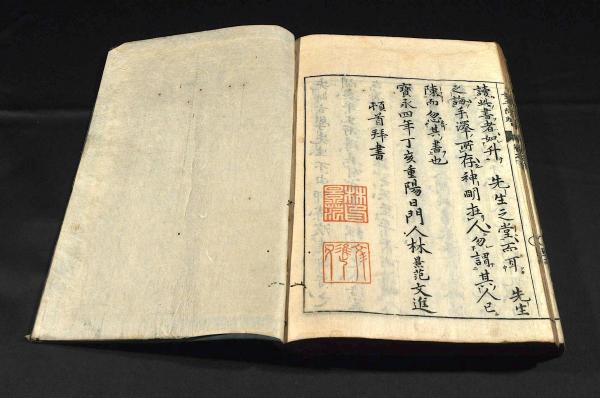 讀此書者如升 先生之堂而耳 先生
之誨手澤所存神明 人勿謂其人已
陳而忽其書也
寳永四年丁亥重陽日門人林景范文進
頓首拜書
林景范
文進